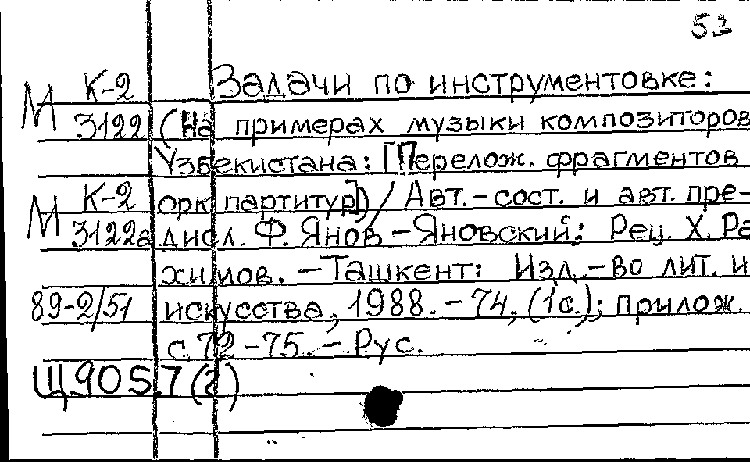 53
К-2 Задачи по инструментовке:
М 3122 (На примерах музыки композиторов
Узбекистана: [Перелож. фрагментов
К-2 орк. партитур]) / Авт.-сост. и авт. пре-
М 3122а дисл. Ф. Янов-Яновский; Рец. Х. Ра
химов. - Ташкент: Изд-во лит. и
89-2/51 искусства, 1988. - 74, (1с.); прилож.
с. 72-75. - Рус.
Щ905.7(2)